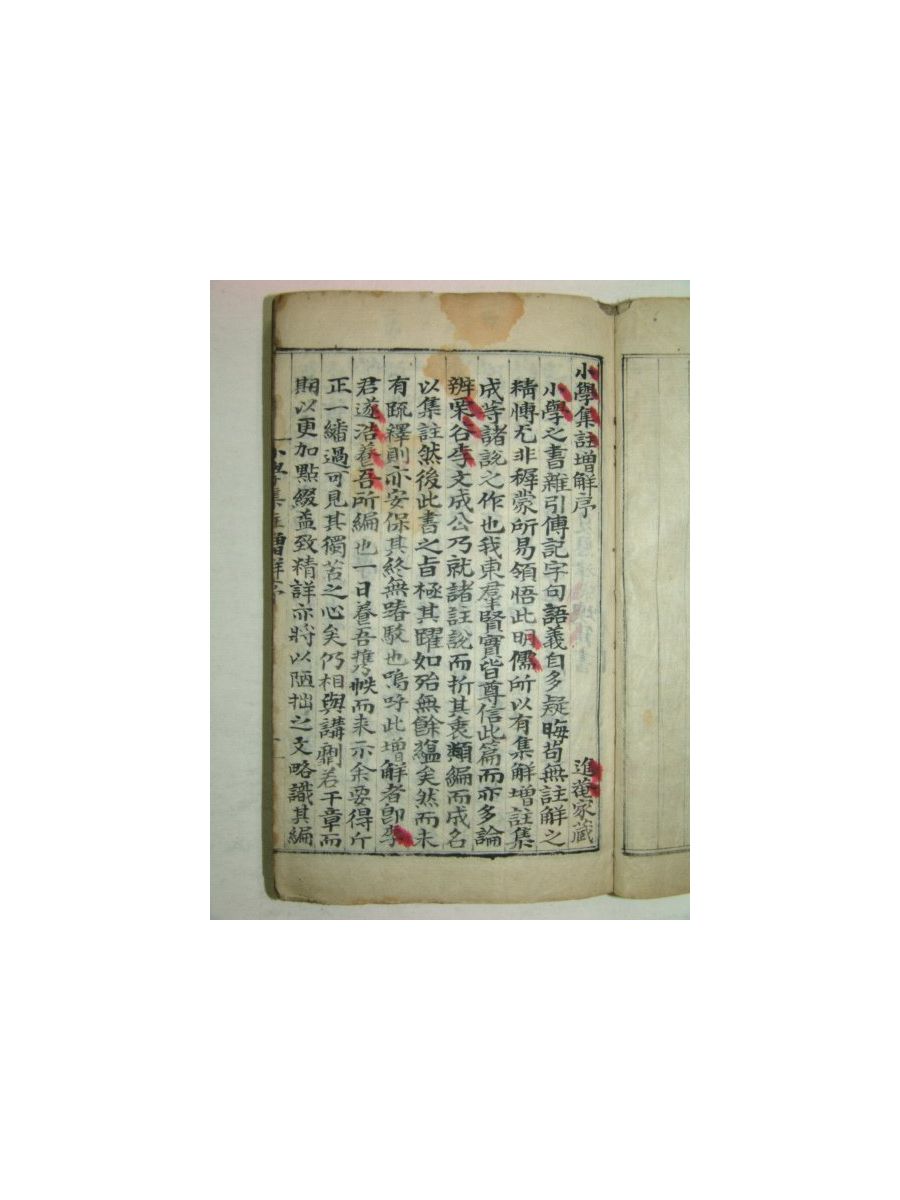 小學集註增解序 進菴家藏
小學之書雜引傳記字句語義自多疑晦苟無註解之
精慱尤非穉蒙所易領悟此明儒所以有集解增註集
成等諸說之作也我東羣賢實皆尊信此篇而亦多論
辨栗谷李文成公乃就諸註說而折其衷類編而成名
以集註然後此書之旨極其躍如殆無餘蘊矣然而未
有疏釋則亦安保其終無踳駁也嗚呼此增解者卽李
君遂浩養吾所編也一日養吾携帙而来示余要得斤
正一繙過可見其獨苦之心矣仍相與講劘若干章而
期以更加點綴益致精詳亦將以陋拙之文略識其編
小學集註增解序